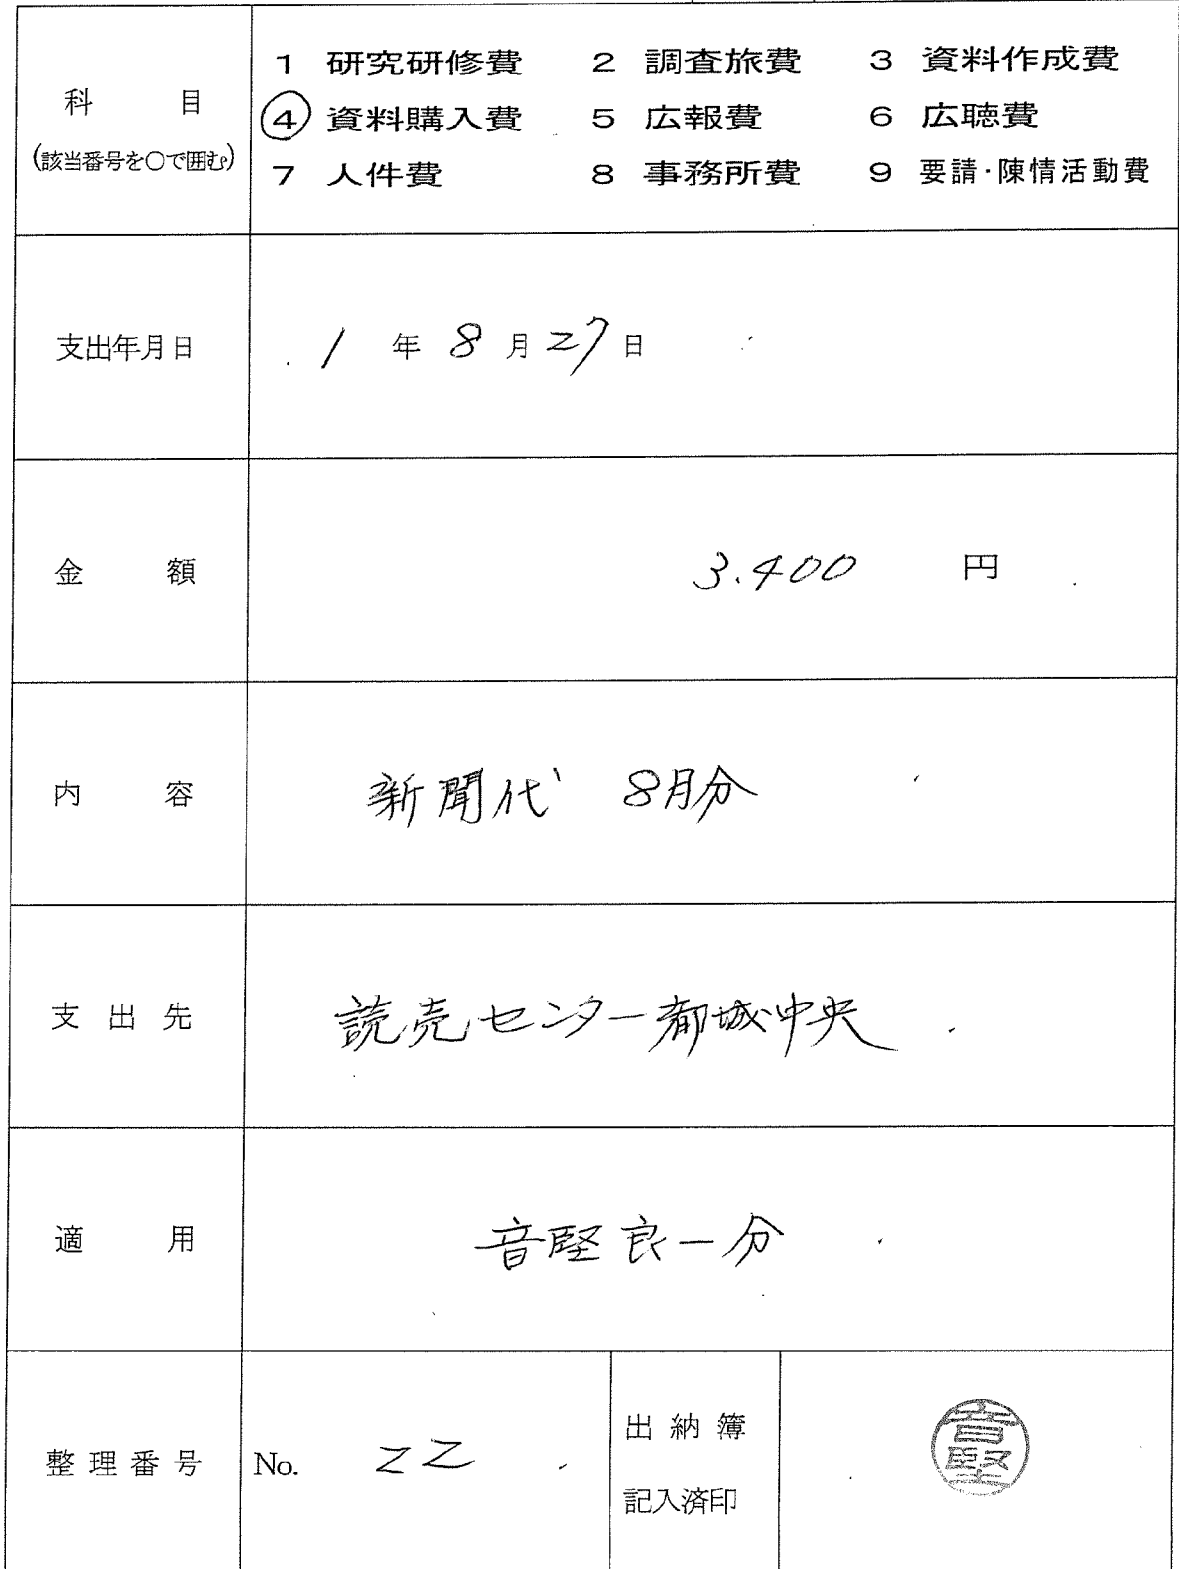 科 目
(該当番号を○で囲む)
1 研究研修費 2 調査旅費 3 資料作成費
4 資料購入費 5 広報費 6 広聴費
7 人件費 8 事務所費 9 要請・陳情活動費
支出年月日 1 年 8 月 27 日
金 額 3.400 円
内 容 新聞代 8月分
支 出 先 読売センター都城中央
適 用 音堅良一分
整 理 番 号 No. 22
出 納 簿
記入済印
音堅